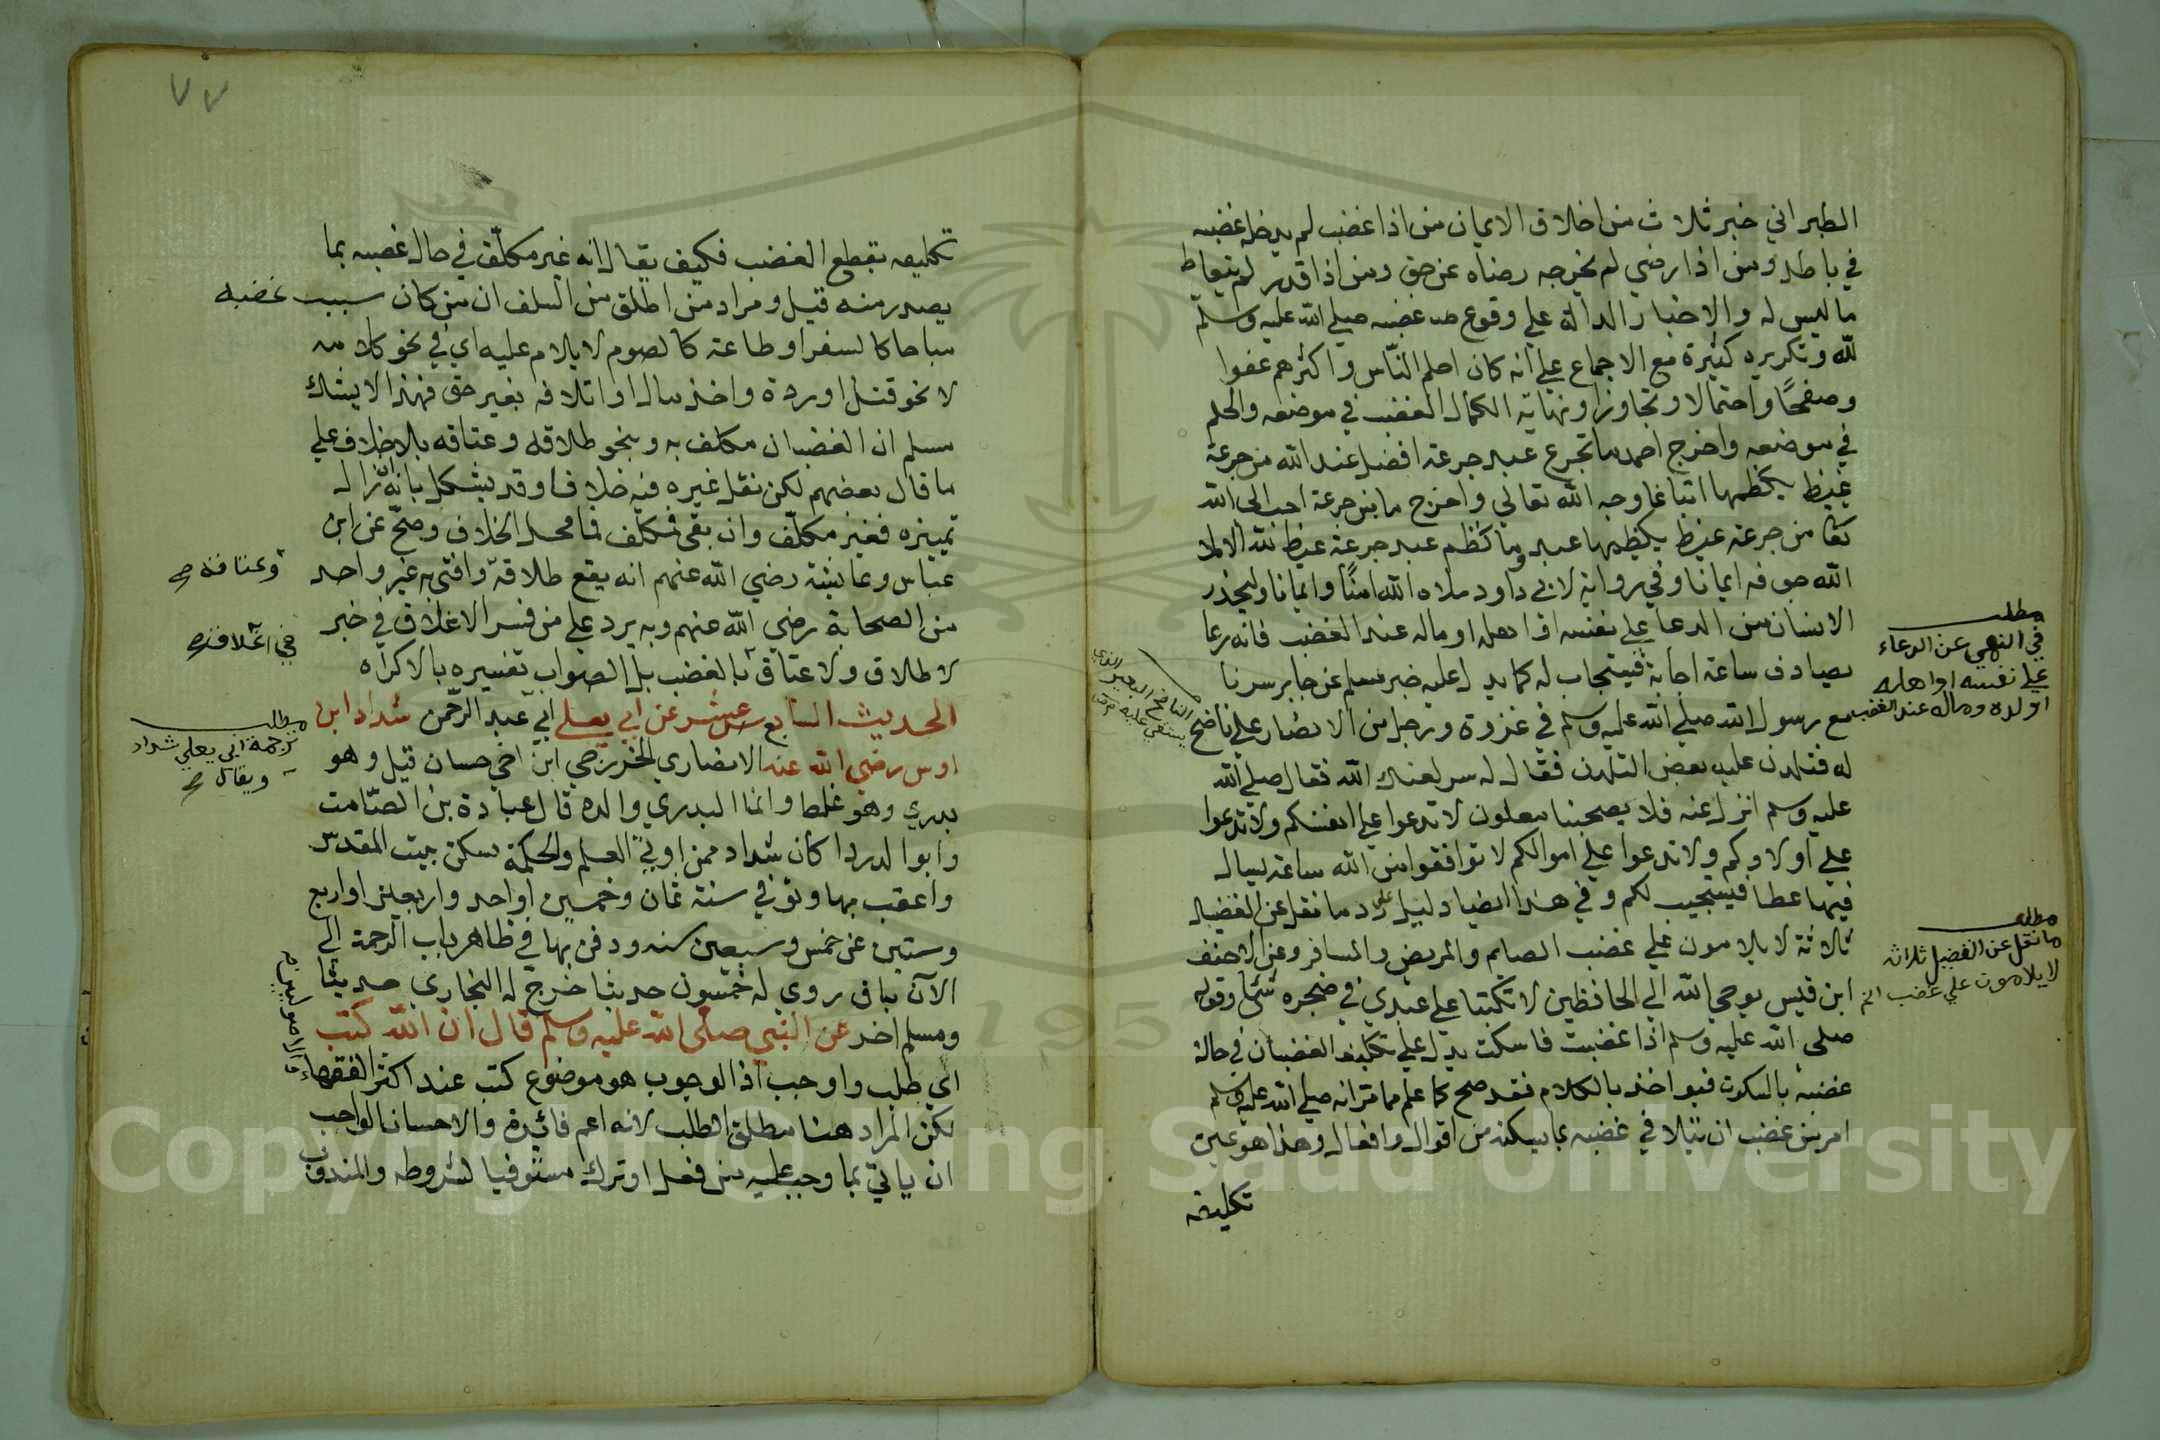 الطبراني خبر ثلاث من اخلاق الايمان من اذا غضب لم يدخله غضبه
في باطل ومن اذا رضي لم يخرجه رضاه عن حق ومن اذا قدر لم يتعاط
ما ليس له والاخبار الدالة علي وقوع غضبه صلي الله عليه وسلم
لله وتكريره كثيرة مع الاجماع علي انه كان احلم الناس واكثرهم عفوا
وصفحًا واحتمالا وتجاوزا ونهاية الكمال الغضب في موضعه والحلم
في موضعه واخرج احمد ما تجرع عبد جرعة افضل عند الله من جرعة
غيظ يكظمها ابتغا وجه الله تعالي واخرج ما من جرعة احب الي الله
تعا من جرعة غيظ يكظمها عبد وما كظم عبد جرعة غيظ لله الا ملا
الله جوفه ايمانا وفي رواية لابي داود ملاه الله امنًا وايمانا وليحذر
الانسان من الدعا علي نفسه او اهله او ماله عند الغضب فانه ربما
يصادف ساعة اجابة فيستجاب له كما يدل عليه خبر مسلم عن جابر سرنا
مع رسول الله صلي الله عليه وسلم في غزوة ورجل من الانصار علي ناضح
له فتلدن عليه بعض التلدن فقال له سر لعنك الله فقال صلي الله
عليه وسلم انزل عنه فلا يصحبنا ملعون لا تدعوا علي انفسكم ولا تدعوا
علي اولادكم ولا تدعوا علي اموالكم لا توافقوا من الله ساعة يسال
فيها عطا فيستجيب لكم وفي هذا ايضا دليل علي رد ما نقل عن الفضيل
ثلاثة لا يلامون علي غضب الصائم والمريض والمسافر وعن الاحنف
ابن قيس يوحي الله الي الحافظين لا تكتبا علي عبدي في ضجره شئ وقوله
صلي الله عليه وسلم اذا غضبت فاسكت يدل علي تكليف الغضبان في حالة
غضبه بالسكوت فيواخذ بالكلام فقد صح كما علم مما مر انه صلي الله عليه وسلم
امر من غضب ان يتلا في غضبه بما يسكنه من اقوال وافعال وهذا هو عين
تكليفه
مطلب
في النهي عن الدعاء
علي نفسه او اهله
او ولده وماله عند الغضب
الناضح البعير الذي
يستقي عليه
مطلب
ما نقل عن الفضيل ثلاثة
لا يلامون علي غضب الخ
٧٧
تكليفه بقطع الغضب فكيف يقال انه غير مكلف في حال غضبه بما
يصدر منه قيل ومراد من اطلق من السلف ان من كان سبب غضبه
مباحا كالسفر او طاعة كالصوم لا يلام عليه اي في نحو كلامه
لا نحو قتل او ردة واخذ مال او اتلافه بغير حق فهذا لا يشك
مسلم ان الغضبان مكلف به وبنحو طلاقه وعتاقه بلا خلاف علي
ما قال بعضهم لكن نقل غيره فيه خلافا وقد يشكل بانه ان زال
تمييزه فغير مكلف وان بقي فمكلف فما محل الخلاف وصح عن ابن
عباس وعايشة رضي الله عنهم انه يقع طلاقه وافتي به غير واحد
من الصحابة رضي الله عنهم وبه يرد علي من فسر الاغلاق في خبر
لا طلاق ولا عتاق بالغضب بل الصواب تفسيره بالاكراه
الحديث السابع عشر عن ابي يعلي ابي عبد الرحمن شداد ابن
اوس رضي الله عنه الانصاري الخزرجي ابن اخي حسان قيل وهو
بدري وهو غلط وانما البدري والده قال عبادة بن الصامت
وابو الدردا كان شداد ممن اوتي العلم والحكمة سكن بيت المقدس
واعقب بها وتوفي سنة ثمان وخمسين او احد واربعين او اربع
وستين عن خمس وسبعين سنه ودفن بها في ظاهر باب الرحمة الي
الآن باق روي له خمسون حديثا خرج له البخاري حديثا
ومسلم اخر عن النبي صلى الله عليه وسلم قال ان الله كتب
اي طلب واوجب اذ الوجوب هو موضوع كتب عند اكثر الفقهاء
لكن المراد هنا مطلق الطلب لانه اعم فائدة والاحسان الواجب
ان ياتي بما وجب عليه من فعل او ترك مستوفيا لشروطه والمندوب
وعتاقه صح
في اغلاقه
مطلب
ترجمة ابي يعلي شداد
ويقال صح
والاصوليين
Copyright © King Saud University
195